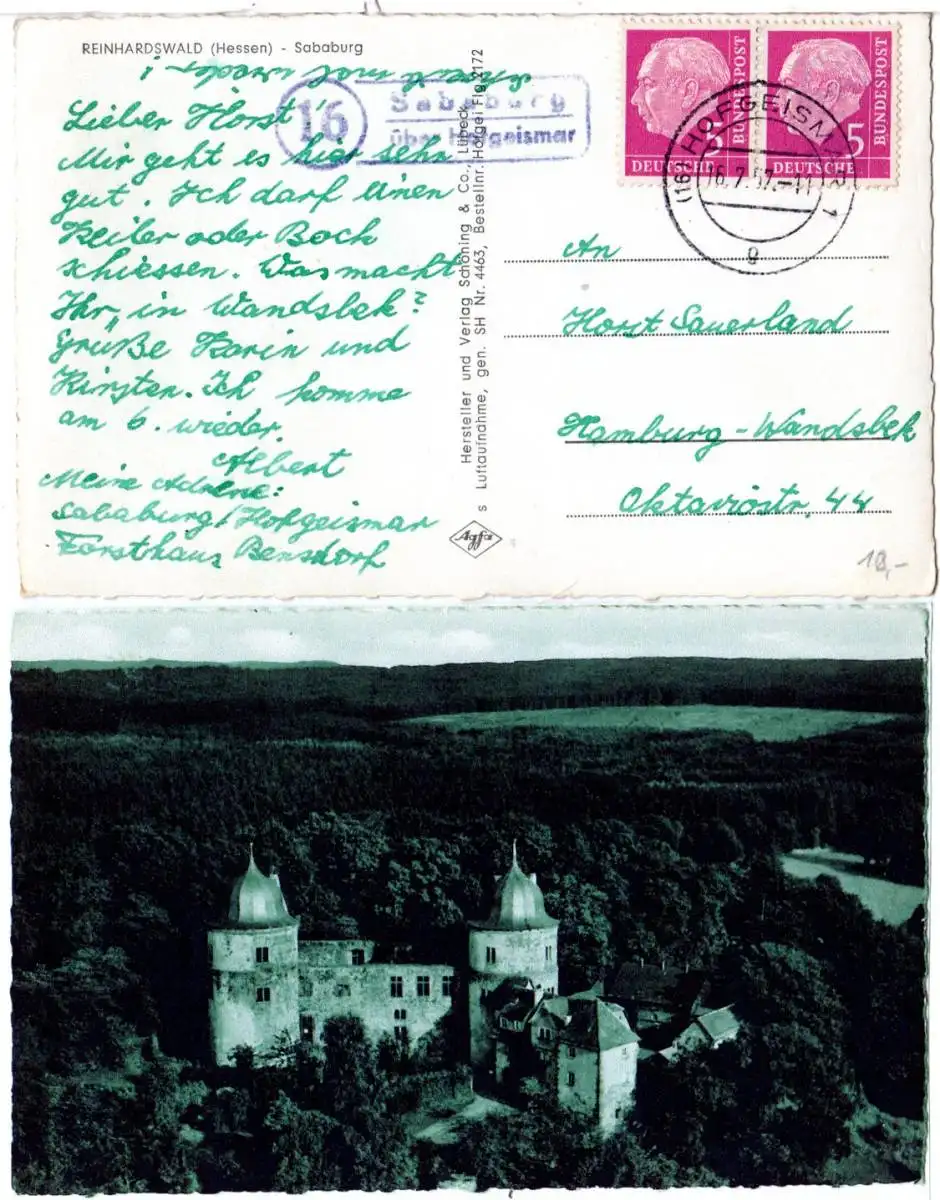 REINHARDSWALD (Hessen) - Sababurg
Lieber Horst!
Mir geht es hier sehr
gut. Ich darf einen
Keiler oder Bock
schiessen. Was macht
Ihr, in Wandsbek?
Grüße Karin und
Kirsten. Ich komme
am 6. wieder.
Albert
Meine Adresse:
Sababurg/Hofgeismar
Forsthaus Bensdorf
16
Sababurg
über Hofgeismar
Hersteller und Verlag Schöning & Co., Lübeck
s Luftaufnahme, gen. SH Nr. 4463, Bestellnr. Hofgei Flg 2172
Agfa
5 DEUTSCHE BUNDESPOST
5 DEUTSCHE BUNDESPOST
(16) HOFGEISMAR 1
16.7.57.-11
g
An
Horst Sauerland
Hamburg-Wandsbek
Oktaviostr. 44